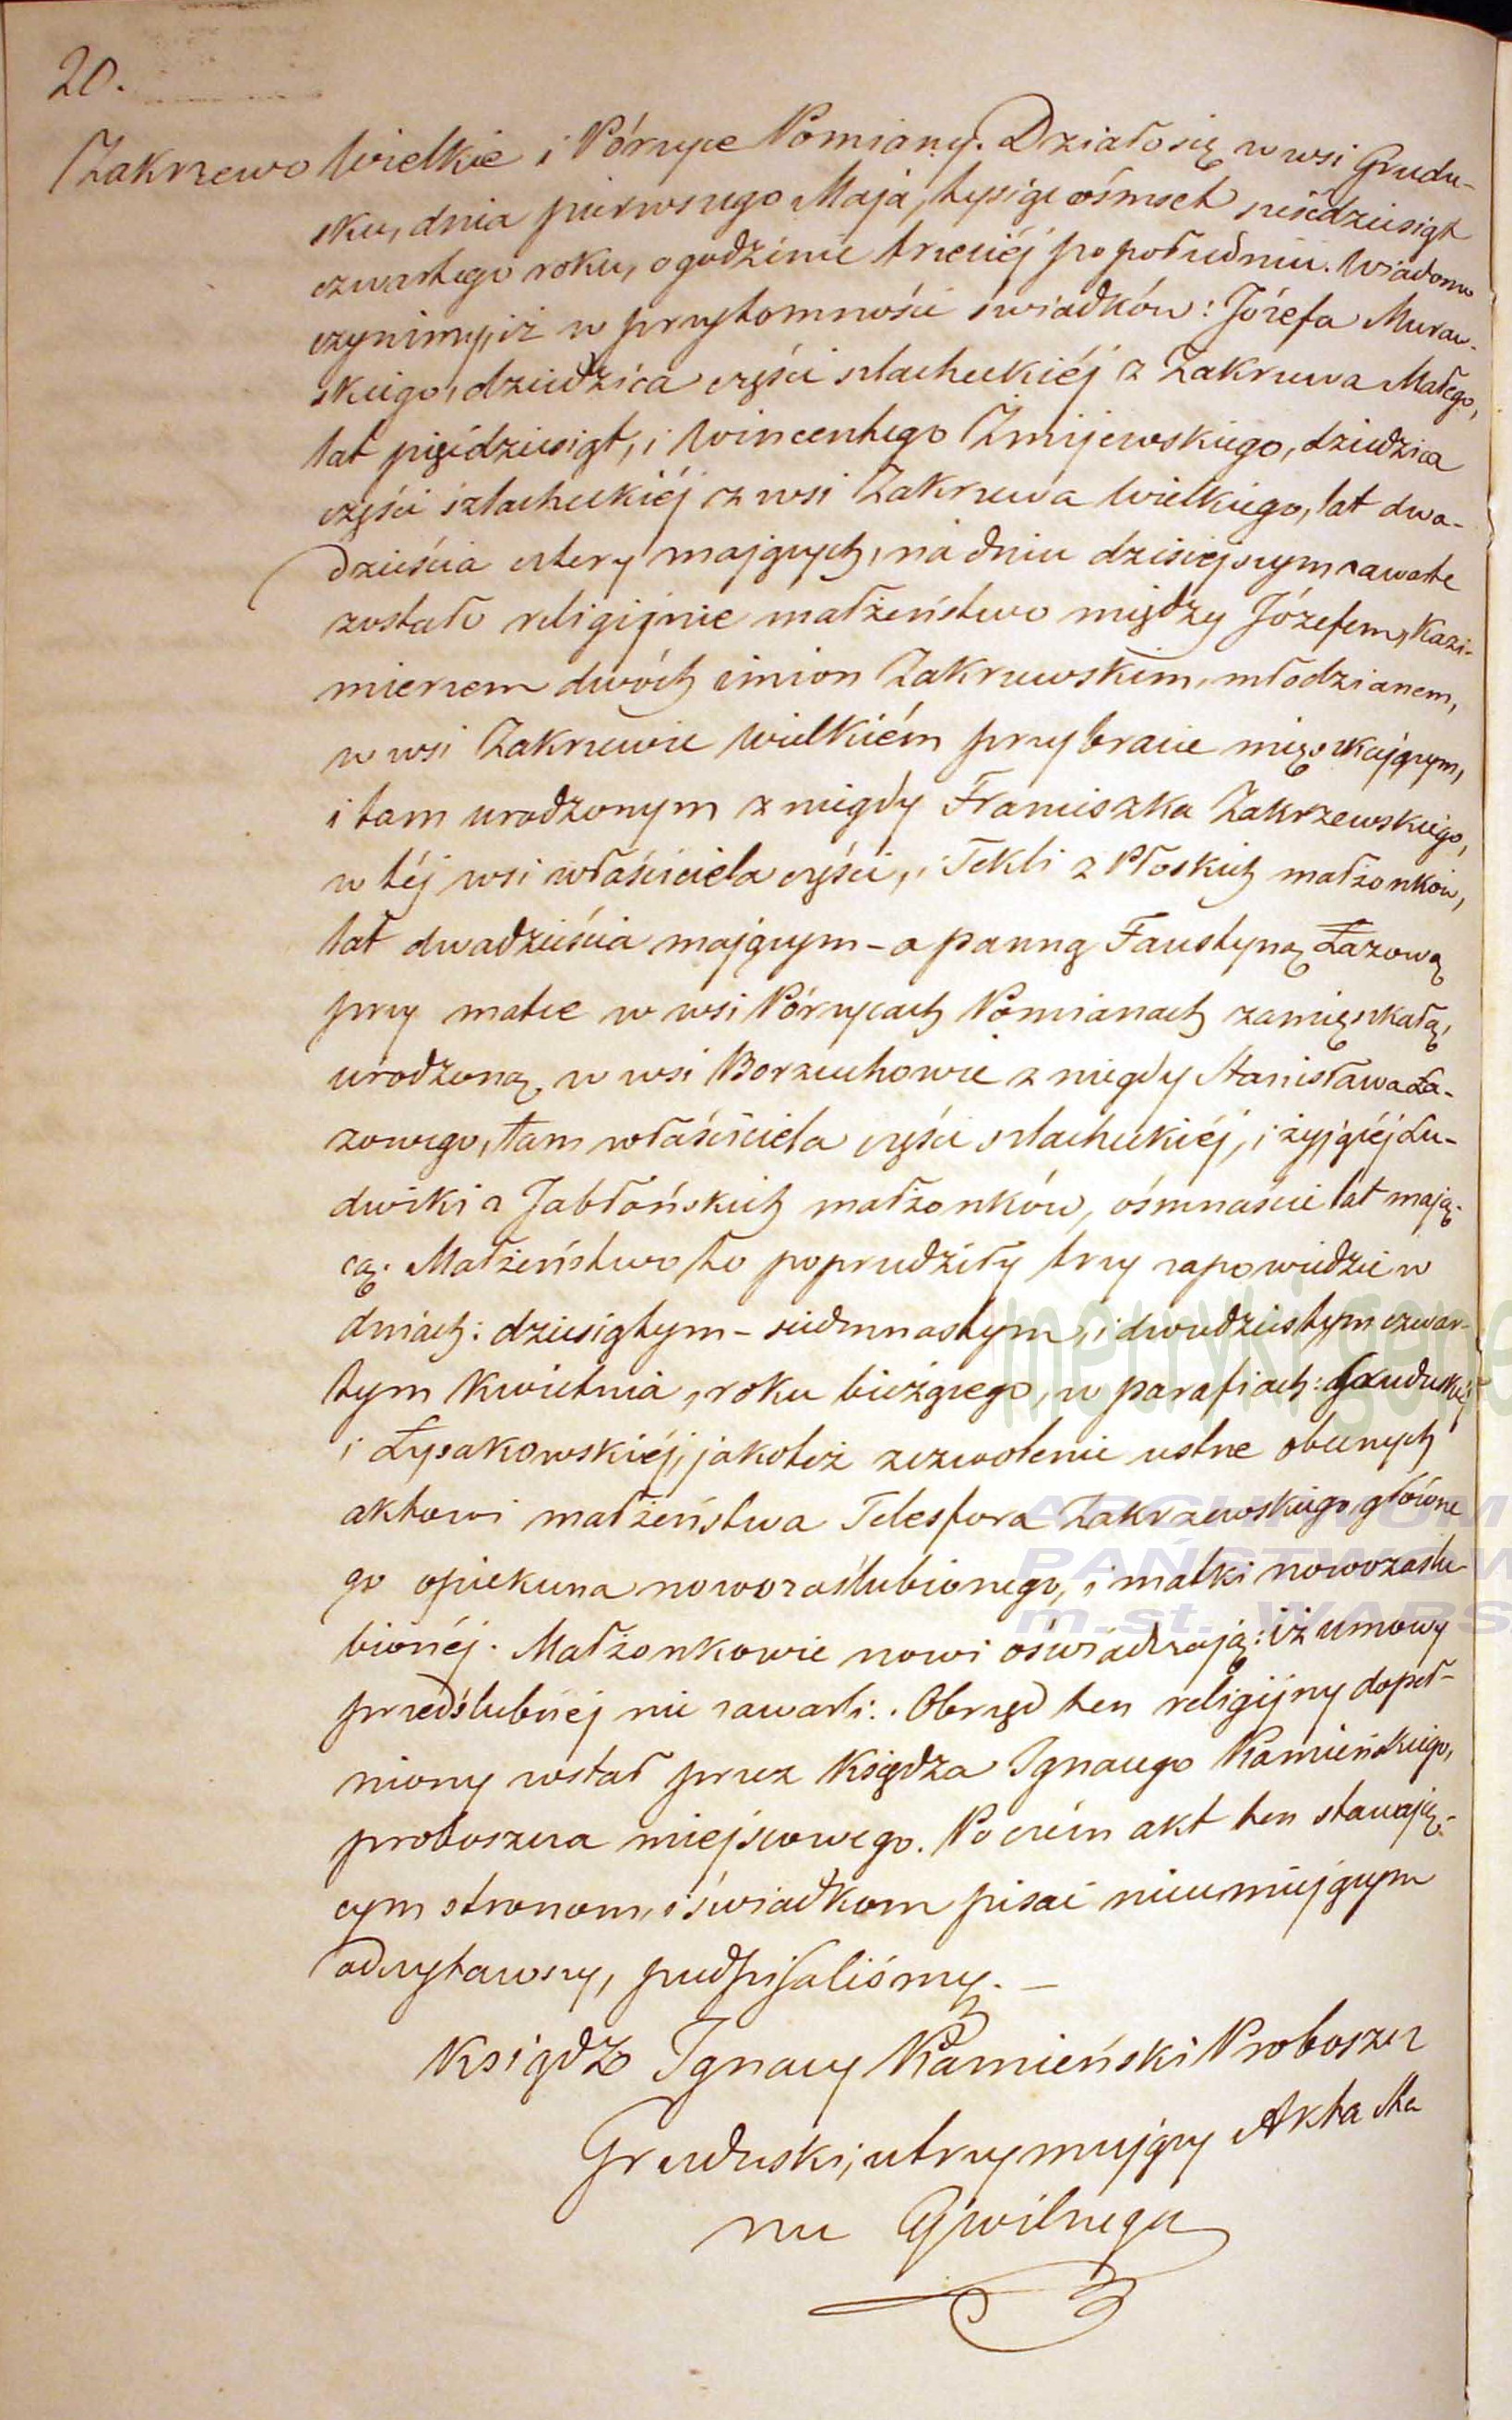 20.
Zakrzewo Wielkie i Pórzyce Pomiany. Działo się w wsi Grudu-
sku, dnia pierwszego Maja, tysiąc ośmset sześćdziesiąt
czwartego roku, o godzinie trzeciéj po południu. Wiadomo
czynimy, iż w przytomności świadków: Józefa Muraw-
skiego, dziedzica części szlacheckiéj z Zakrzewa Małego,
lat pięćdziesiąt, i Wincentego Żmijewskiego, dziedzica
części szlacheckiéj z wsi Zakrzewa Wielkiego, lat dwa-
dzieścia cztery mających, na dniu dzisiejszym zawarte
zostało religijnie małżeństwo między Józefem, Kazi-
mierzem dwóch imion Zakrzewskim, młodzianem,
w wsi Zakrzewie Wielkiém przy bracie mięszkającym,
i tam urodzonym z niegdy Franciszka Zakrzewskiego,
w téj wsi właściciela części, i Tekli z Płoskich małżonków,
lat dwadzieścia mającym – a panną Faustyną Łazową
przy matce w wsi Pórzycach Pomianach zamięszkałą,
urodzoną w wsi Borzuchowie z niegdy Stanisława Ła-
zowego, tam właściciela części szlacheckiéj, i żyjącéj Lu-
dwiki z Jabłońskich małżonków, ośmnaście lat mają-
cą. Małżeństwo to poprzedziły trzy zapowiedzie w
dniach: dziesiątym – siedmnastym, i dwudziestym czwar-
tym Kwietnia, roku bieżącego, w parafiach: Gruduskiéj
i Łysakowskiéj, jakoteż zezwolenie ustne obecnych
aktowi małżeństwa Telesfora Zakrzewskiego, główne
go opiekuna nowozaślubionego, i matki nowozaślu-
bionéj. Małżonkowie nowi oświadczają: iż umowy
przedślubnéj nie zawarli. Obrzęd ten religijny dopeł-
niony został przez Księdza Ignacego Kamieńskiego,
proboszcza miejscowego. Po czém akt ten stawają-
cym stronom, i świadkom pisać nieumiejącym
odczytawszy, podpisaliśmy. –
Ksiądz Ignacy Kamieński Proboszcz
Gruduski, utrzymujący Akta Sta
nu Cywilnego
metryki.gene
ARCHIWUM
PAŃSTWOW
m.st. WARS